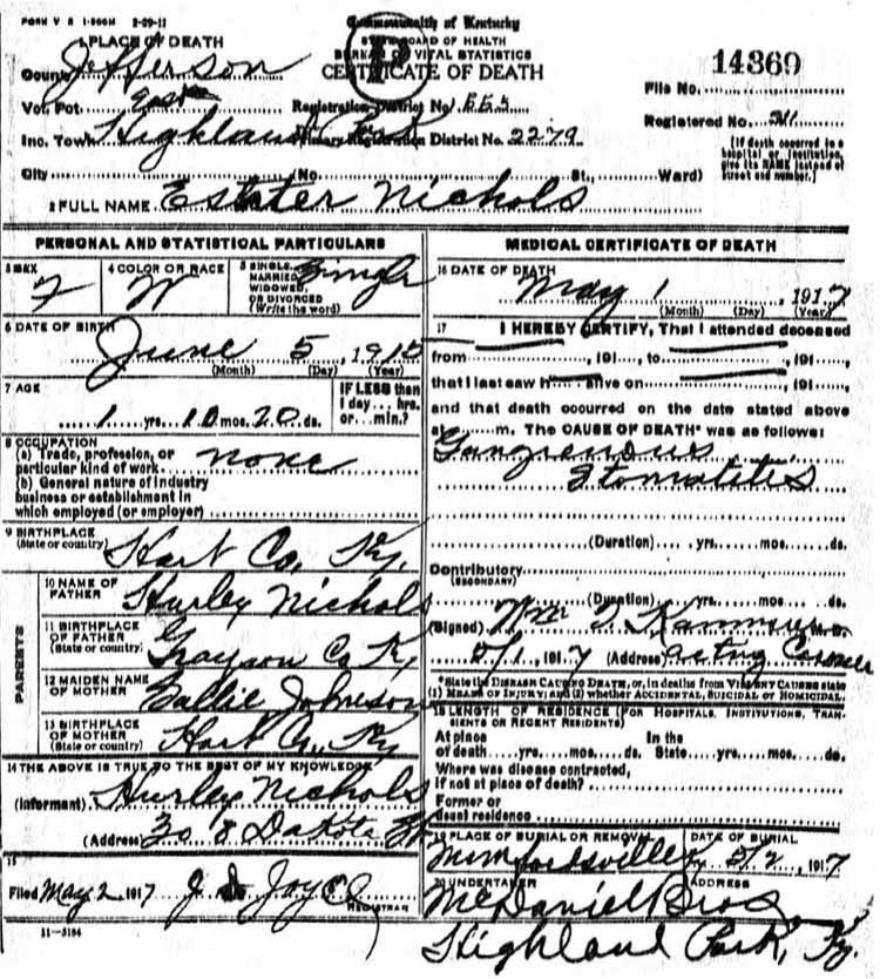 FORM V S 1-500M 2-29-11
Commonwealth of Kentucky
STATE BOARD OF HEALTH
BUREAU OF VITAL STATISTICS
CERTIFICATE OF DEATH
P
1 PLACE OF DEATH
County Jefferson
Vot. Pct. East
Inc. Town Highland Park
City No. St., Ward)
Registration District No.
Primary Registration District No. 2279
14369
File No.
Registered No.
[If death occurred in a
hospital or institution,
give its NAME instead of
street and number.]
2 FULL NAME Estater Nichols
PERSONAL AND STATISTICAL PARTICULARS
3 SEX
F
4 COLOR OR RACE
W
5 SINGLE,
MARRIED,
WIDOWED,
OR DIVORCED
(Write the word)
Single
6 DATE OF BIRTH
June 5, 1915
(Month) (Day) (Year)
7 AGE
1 yrs. 10 mos. 20 ds.
IF LESS than
1 day... hrs.
or... min.?
8 OCCUPATION
(a) Trade, profession, or
particular kind of work none
(b) General nature of industry
business or establishment in
which employed (or employer)
9 BIRTHPLACE
(State or country) Hart Co, Ky.
PARENTS
10 NAME OF
FATHER Hurley Nichols
11 BIRTHPLACE
OF FATHER
(State or country) Grayson Co Ky
12 MAIDEN NAME
OF MOTHER Sallie Johnson
13 BIRTHPLACE
OF MOTHER
(State or country) Hart Co, Ky
14 THE ABOVE IS TRUE TO THE BEST OF MY KNOWLEDGE
(Informant) Hurley Nichols
(Address) Dakota
15
Filed May 2, 1917 Joyce
REGISTRAR
11-3184
MEDICAL CERTIFICATE OF DEATH
16 DATE OF DEATH
May 1, 1917
(Month) (Day) (Year)
17 I HEREBY CERTIFY, That I attended deceased
from , 191 , to , 191 ,
that I last saw h alive on , 191 ,
and that death occurred on the date stated above
at m. The CAUSE OF DEATH* was as follows:
Gangrenous
Stomatites
(Duration) yrs. mos. ds.
Contributory
(SECONDARY)
(Duration) yrs. mos. ds.
(Signed) Wm M.D.
5/1, 1917 (Address) acting Coroner
*State the DISEASE CAUSING DEATH, or, in deaths from VIOLENT CAUSES state
(1) MEANS OF INJURY; and (2) whether ACCIDENTAL, SUICIDAL or HOMICIDAL.
18 LENGTH OF RESIDENCE (FOR HOSPITALS, INSTITUTIONS, TRAN-
SIENTS OR RECENT RESIDENTS)
At place In the
of death yrs. mos. ds. State yrs. mos. ds.
Where was disease contracted,
if not at place of death?
Former or
usual residence
19 PLACE OF BURIAL OR REMOVAL
Munfordsville Ky
DATE OF BURIAL
5/2, 1917
20 UNDERTAKER
McDaniel Bros
ADDRESS
Highland Park, Ky.